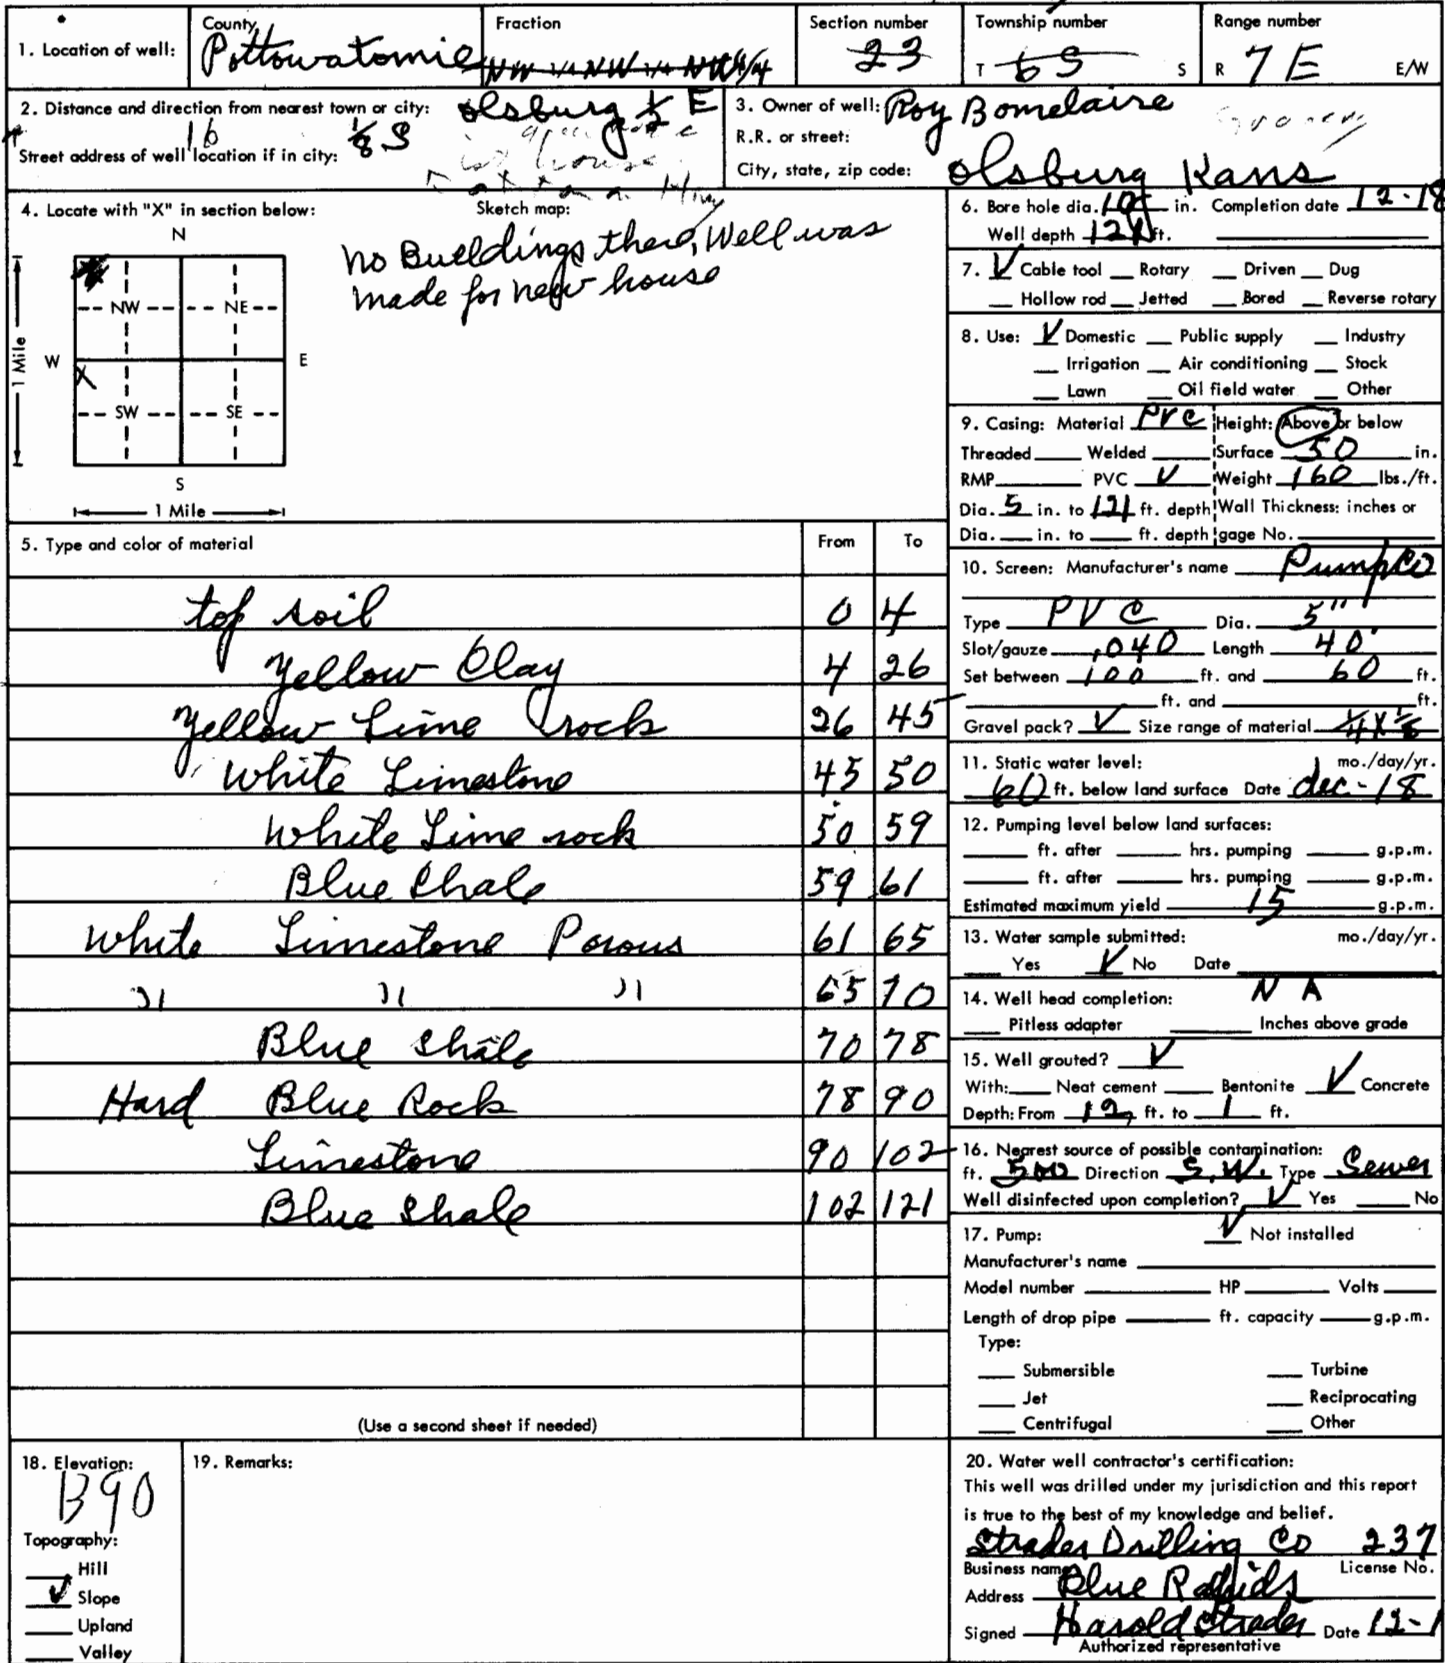 1. Location of well:
County
Pottowatomie
Fraction
NW 1/4 NW 1/4 NW 1/4
Section number
23
Township number
T 6S S
Range number
R 7E E/W
2. Distance and direction from nearest town or city: Olsburg ½ E
16 ⅛ S
Street address of well location if in city:
3. Owner of well: Roy Bomelaire
R.R. or street:
City, state, zip code: Olsburg Kans
4. Locate with "X" in section below:
Sketch map:
No Buildings there, Well was
made for new house
N
NW NE
W E
X
SW SE
S
1 Mile
1 Mile
5. Type and color of material From To
top soil 0 4
Yellow Clay 4 26
Yellow Lime rock 26 45
White Limestone 45 50
White Lime rock 50 59
Blue Shale 59 61
White Limestone Porous 61 65
" " " 65 70
Blue Shale 70 78
Hard Blue Rock 78 90
Limestone 90 102
Blue Shale 102 121
(Use a second sheet if needed)
6. Bore hole dia. 10 in. Completion date 12-18
Well depth 121 ft.
7. ✓ Cable tool __ Rotary __ Driven __ Dug
__ Hollow rod __ Jetted __ Bored __ Reverse rotary
8. Use: ✓ Domestic __ Public supply __ Industry
__ Irrigation __ Air conditioning __ Stock
__ Lawn __ Oil field water __ Other
9. Casing: Material PVC Height: Above or below
Threaded ____ Welded ____ Surface 50 in.
RMP ____ PVC ✓ Weight 160 lbs./ft.
Dia. 5 in. to 121 ft. depth Wall Thickness: inches or
Dia. __ in. to __ ft. depth gage No. ____
10. Screen: Manufacturer's name PumpCo
Type PVC Dia. 5"
Slot/gauze .040 Length 40'
Set between 100 ft. and 60 ft.
____ ft. and ____ ft.
Gravel pack? ✓ Size range of material 1/4 x 1/8
11. Static water level: mo./day/yr.
60 ft. below land surface Date dec-18
12. Pumping level below land surfaces:
____ ft. after ____ hrs. pumping ____ g.p.m.
____ ft. after ____ hrs. pumping ____ g.p.m.
Estimated maximum yield 15 g.p.m.
13. Water sample submitted: mo./day/yr.
__ Yes ✓ No Date ____
14. Well head completion: N A
__ Pitless adapter ____ Inches above grade
15. Well grouted? ✓
With: __ Neat cement __ Bentonite ✓ Concrete
Depth: From 12 ft. to 1 ft.
16. Nearest source of possible contamination:
ft. 500 Direction S.W. Type Sewer
Well disinfected upon completion? ✓ Yes __ No
17. Pump: ✓ Not installed
Manufacturer's name ____
Model number ____ HP ____ Volts ____
Length of drop pipe ____ ft. capacity ____ g.p.m.
Type:
__ Submersible __ Turbine
__ Jet __ Reciprocating
__ Centrifugal __ Other
18. Elevation:
1390
Topography:
__ Hill
✓ Slope
__ Upland
__ Valley
19. Remarks:
20. Water well contractor's certification:
This well was drilled under my jurisdiction and this report
is true to the best of my knowledge and belief.
Strader Drilling Co 237
Business name License No.
Address Blue Rapids
Signed Harold Strader Date 12-1
Authorized representative